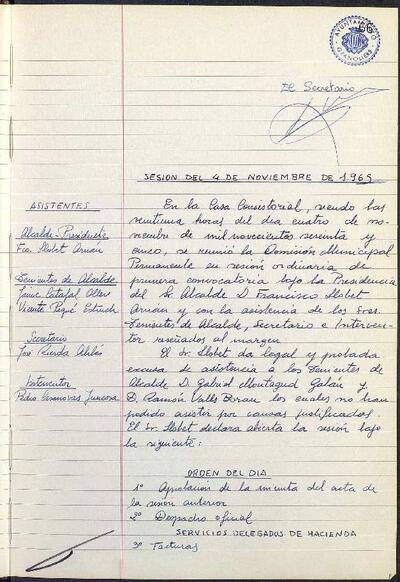 66
AYUNTAMIENTO
GRANOLLERS
El Secretario
SESION DEL 4 DE NOVIEMBRE DE 1965
ASISTENTES
Alcalde-Presidente
Fco. Llobet Arnan
Tenientes de Alcalde
Vicente Pagué
Secretario
José
Interventor
Pedro Casanovas Juncosa
En la Casa Consistorial, siendo las
veintiuna horas del dia cuatro de no-
viembre de mil novecientos sesenta y
cinco, se reunió la Comisión Municipal
Permanente en sesión ordinaria de
primera convocatoria bajo la Presidencia
del Sr. Alcalde D. Francisco Llobet
Arnan y con la asistencia de los Sres.
Tenientes de Alcalde, Secretario e Interven-
tor reseñados al margen
El Sr. Llobet da legal y probada
excusa de asistencia a los Tenientes de
Alcalde D. Gabriel Montagud Galán y
D. Ramón Valls Bruu los cuales no han
podido asistir por causas justificadas.
El Sr. Llobet declara abierta la sesión bajo
la siguiente:
ORDEN DEL DIA
1º Aprobación de la minuta del acta de
la sesión anterior
2º Despacho oficial
SERVICIOS DELEGADOS DE HACIENDA
3º Facturas